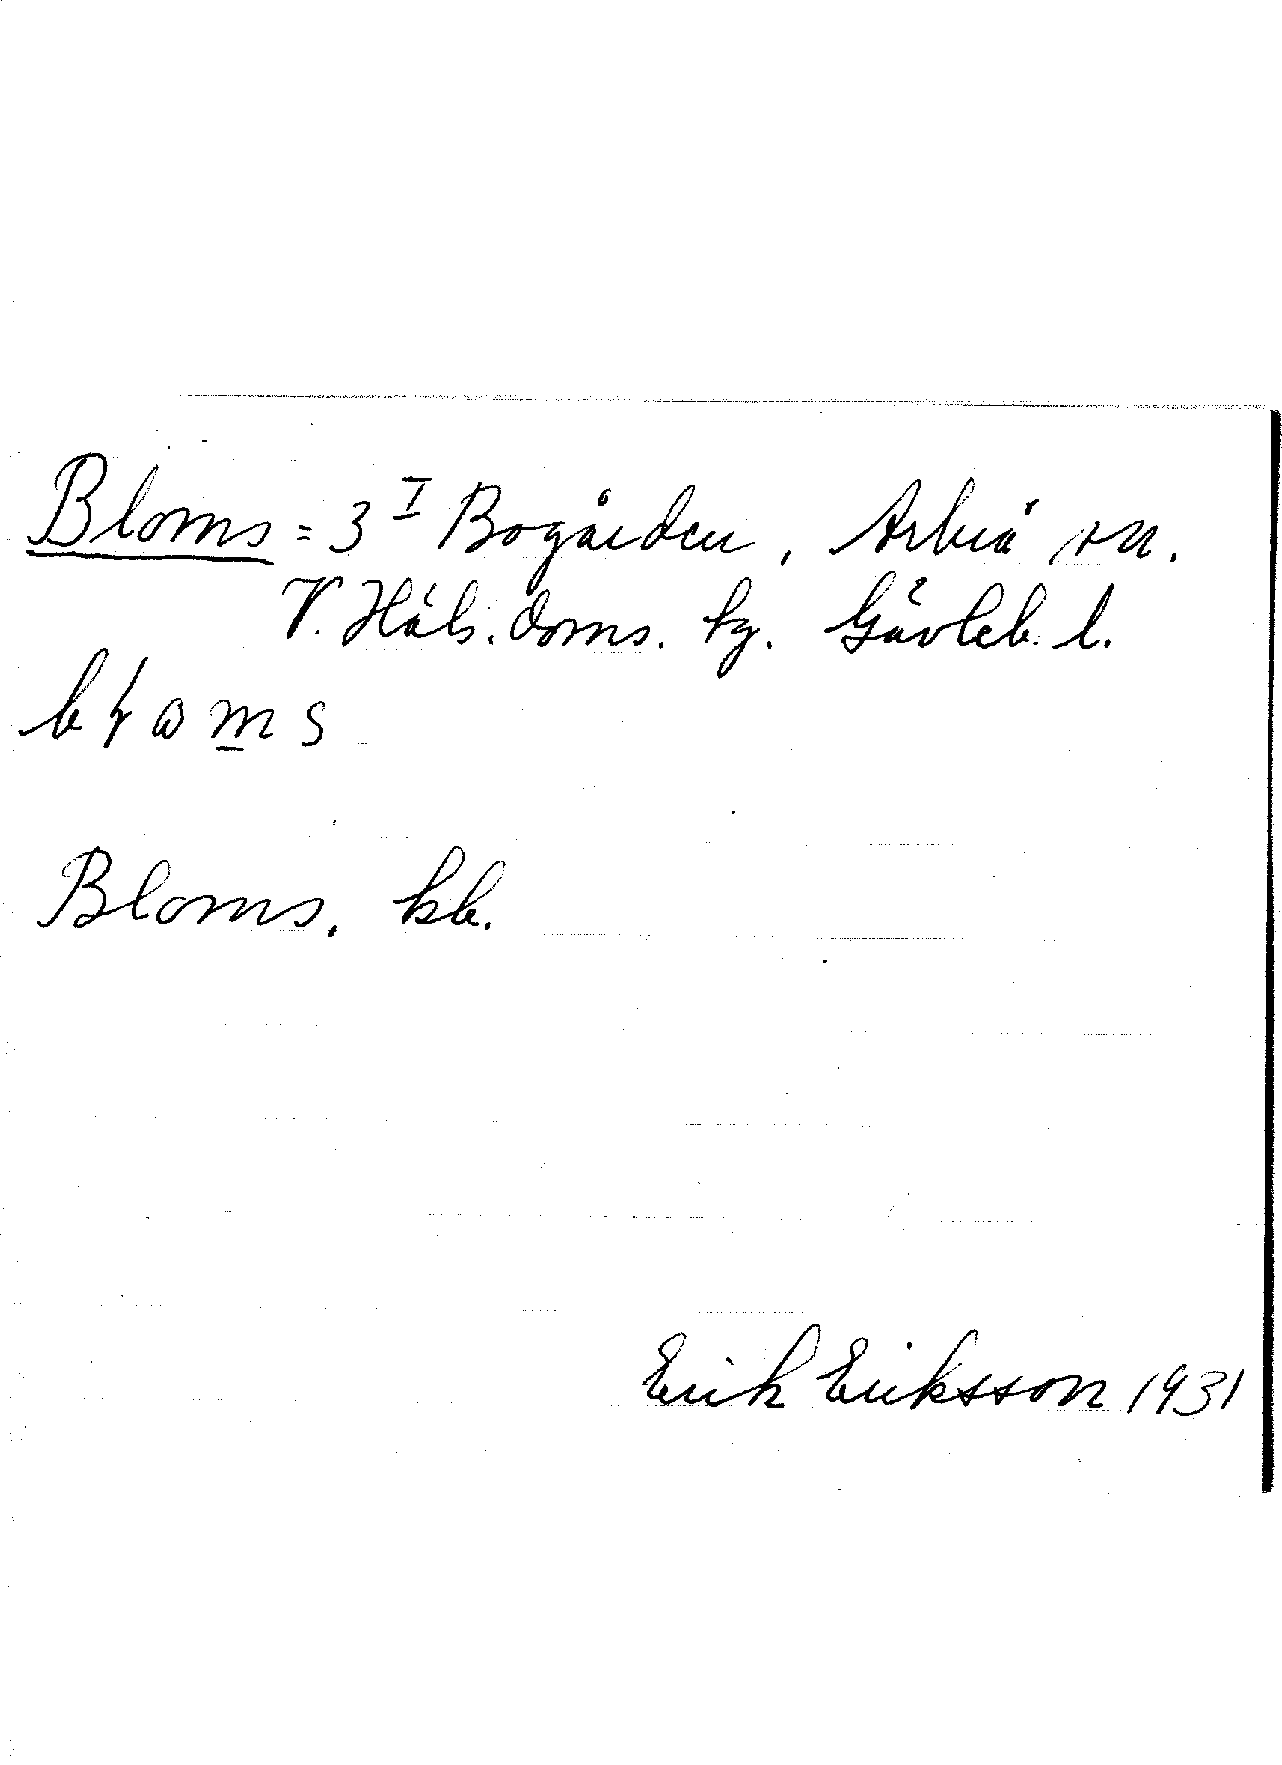 Bloms = 3 I Bogården, Arbrå sn.
V. Häls. doms. hg. Gävleb. l.
Bloms, kb.
Erik Eriksson 1931